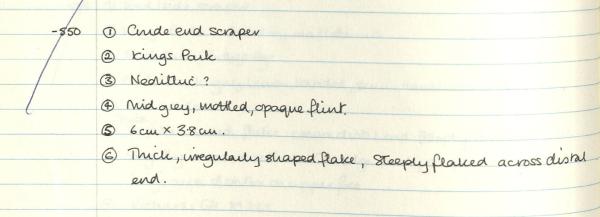 -550 ① Crude end scraper
② Kings Park
③ Neolithic ?
④ Mid grey, mottled, opaque flint.
⑤ 6cm × 3.8cm.
⑥ Thick, irregularly shaped flake, steeply flaked across distal
end.